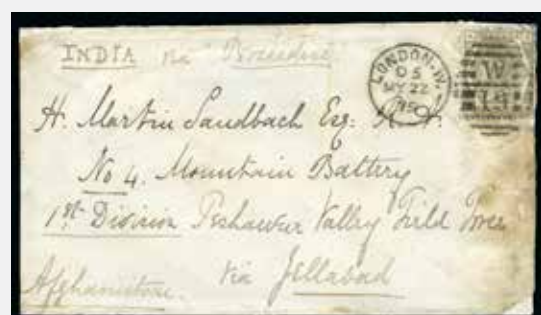 INDIA via "Brindisi"
LONDON.W.
MY 22
H. Martin Sandbach Esq: R.A.
No 4. Mountain Battery
1st Division Peshawur Valley Field Force
Afghanistan. via Jellabad